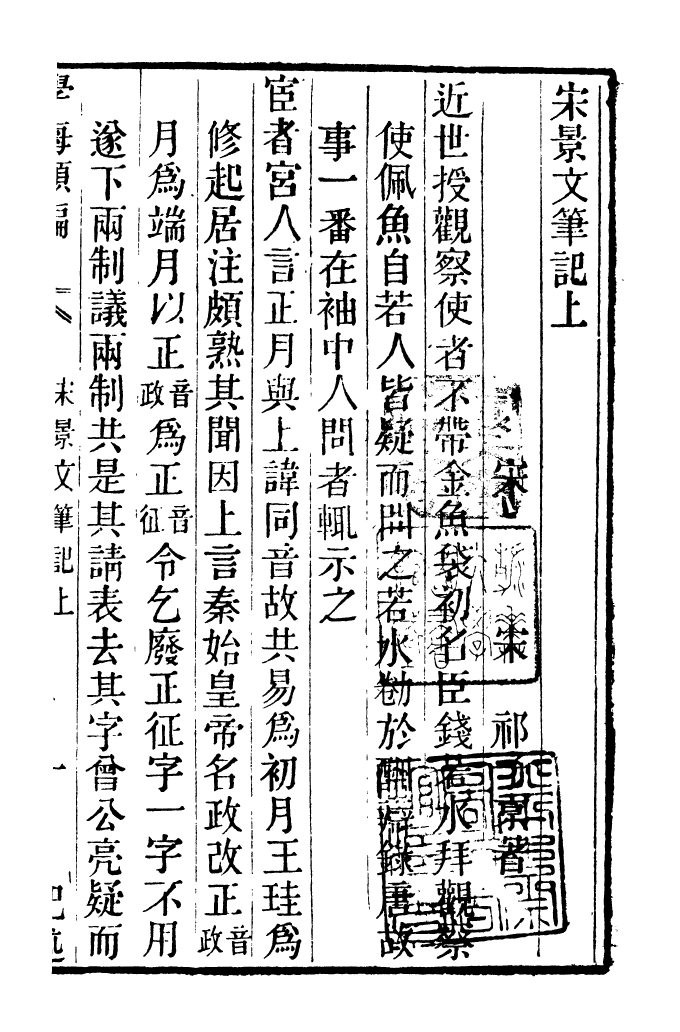 宋景文筆記上
宋　宋　祁　子京著
近世授觀察使者不帶金魚袋初名臣錢若水拜觀察
使佩魚自若人皆疑而問之若水勌於酬辯錄唐故
事一番在袖中人問者輒示之
宦者宮人言正月與上諱同音故共易爲初月王珪爲
修起居注頗熟其聞因上言秦始皇帝名政改正音政
月爲端月以正音政爲正音征令乞廢正征字一字不用
遂下兩制議兩制共是其請表去其字曾公亮疑而
學海類編　宋景文筆記上　一